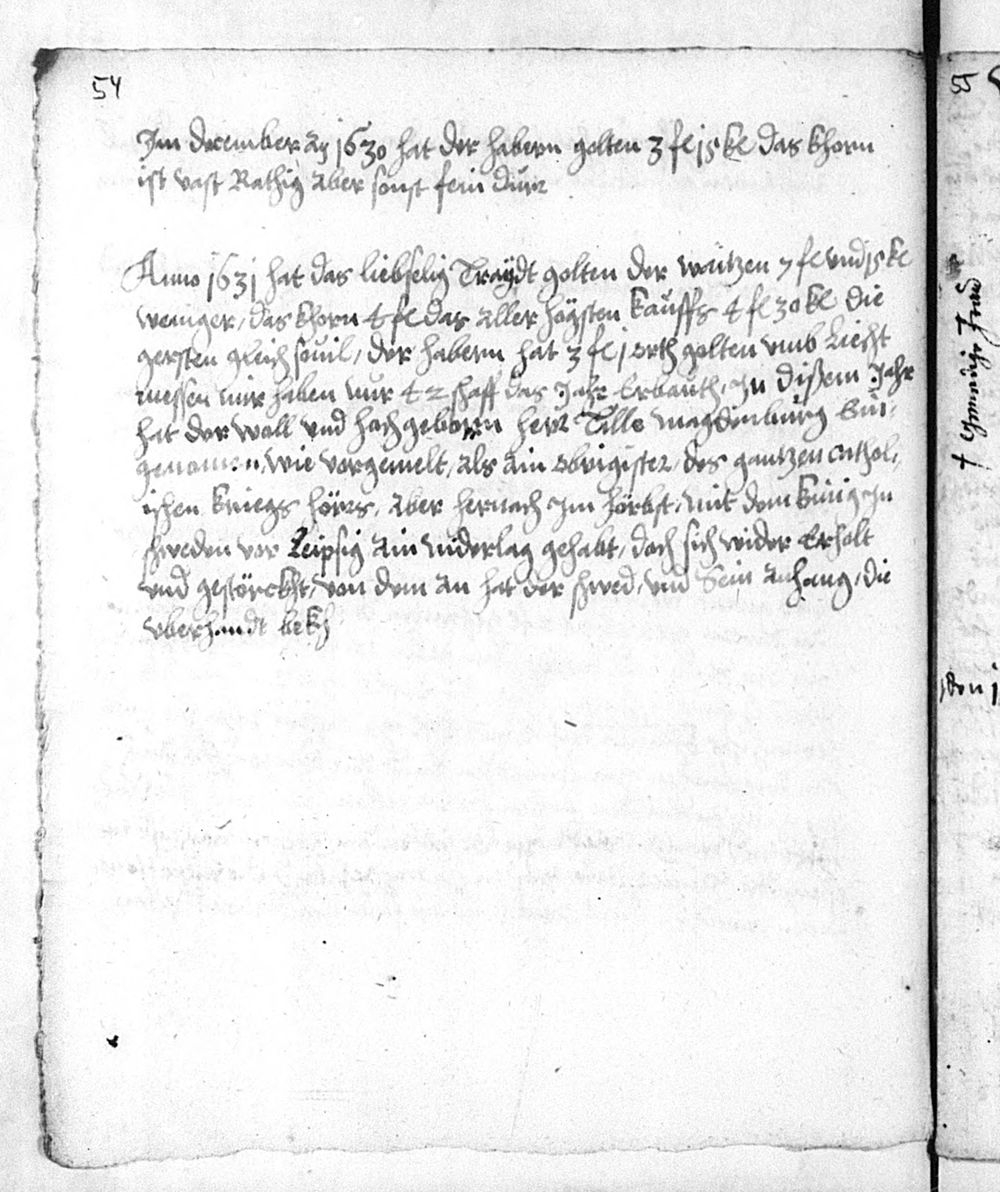 54
Im december ao 1630 hat der habern golten 3 fl 15 kr das khorn
ist vast Rathig aber sonst fein dürr
Anno 1631 hat das liebselig Traydt golten der waitzen 7 fl und 15 kr
weniger, das khorn 4 fl das aller högsten kauffs 4 fl 30 kr die
gersten gleich souil, der habern hat 3 fl 1 orth golten umb Liecht
messen wir haben nur 42 schaff das Jahr Erbauth, In disem Jahr
hat der woll und hochgeborn herr Tille magdenburg Ein,
genomen, wie vorgemelt, als ain obrigister des gantzen cathol,
ischen kriegs hörrs, aber hernach Im hörbst, mit dem künig In
schweden vor Leipsig ain niderlag gehabt, doch sich wider Erholt
und gestörckht, von dem an hat der schwed, und Sein anhang, die
überhandt bekh
55